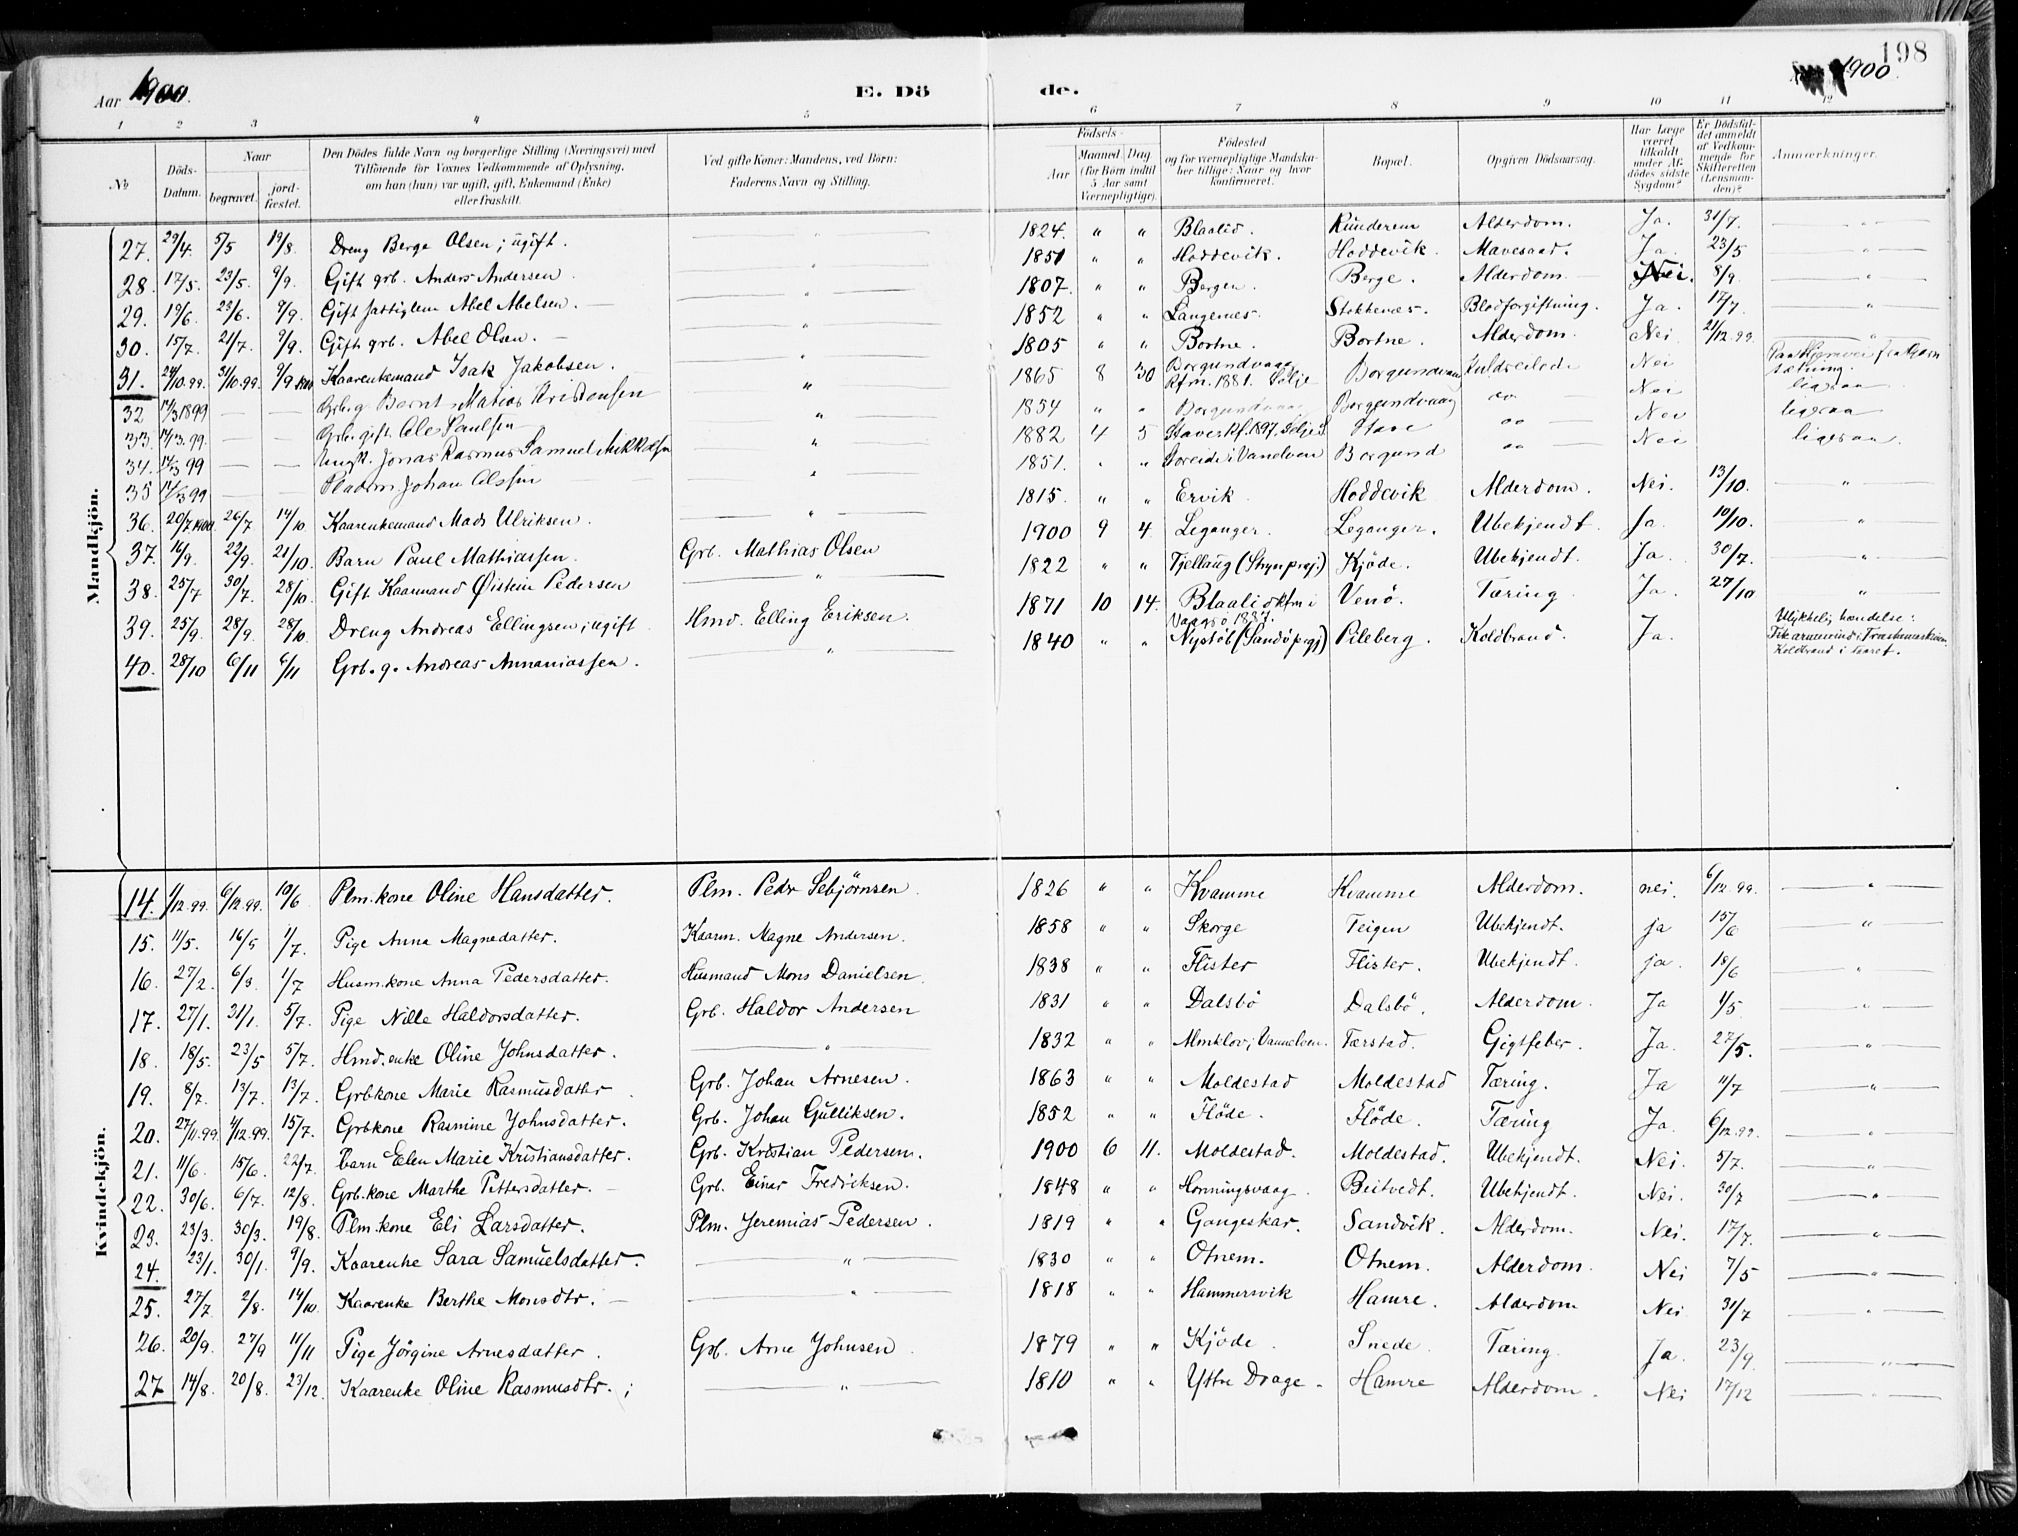 198
Aar 1900. E. Dö de. 1900.
1 2 3 4 5 6 7 8 9 10 11 12
№ Döds-Datum. Naar begravet. jordfæstet. Den Dödes fulde Navn og borgerlige Stilling (Næringsvei) med Tilföiende for Voxnes Vedkommende af Oplysning, om han (hun) var ugift, gift, Enkemand (Enke) eller fraskilt. Ved gifte Koner: Mandens, ved Börn: Faderens Navn og Stilling. Födsels- Aar Maaned. Dag (for Børn indtil 5 Aar samt Værnepligtige). Födested og for værnepligtige Mandskaber tillige: Naar og hvor konfirmeret. Bopæl. Opgiven Dödsaarsag. Har Læge været tilkaldt under Afdödes sidste Sygdom? Er Dödsfaldet anmeldt af Vedkommende for Skifteretten (Lensmanden)? Anmærkninger.
Mandkjön.
27. 29/4. 5/5 19/8. Dreng Berge Olsen; ugift. " 1824. " " Blaalid Runderem Alderdom. Ja. 31/7. "
28. 17/5. 23/5. 9/9. Gift grb. Anders Andersen " 1851 " " Hoddevik. Hoddevik. Mavesaad. Ja 23/5 "
29. 19/6. 23/6. 9/9. Gift fattiglem Abel Abelsen. " 1807. " " Bergen. Berge. Alderdom Nei. 8/9. "
30. 15/7. 21/7. 9/9. Gift grb. Abel Olsen. " 1852 " " Langenes. Stokkenes. Blodforgiftning. Ja. 17/7. "
31. 24/10.99. 31/10.99. 9/9 1900 Kaarenkemand Isak Jakobsen. " 1805 " " Bortne. Bortne. Alderdom. Nei 21/12.99. "
32 14/3 1899 — — Grb. g. Bernt Matias Kristensen " 1865 8 30 Borgundvaag Kfm. 1881. Selje Borgundvaag Kuldseilede Nei
33. 14/3.99. — — Grb. gift Ole Paulsen " 1854 " " Borgundvaag Borgundvaag do — Nei ligesaa
34. 14/3 99 — — Ungk. Jonas Rasmus Samuel Mikkelsen " 1882 4 5 Stave Kf. 1897. Selje Stave do — Nei ligesaa
35 14/3 99 — — Pladsm Johan Olssen " 1851. " " i Vanelven Borgund do — Nei ligesaa.
36. 20/7 1900 26/7 14/10 Kaarenkemand Mads Ulriksen. " 1815. " " Ervik. Hoddevik Alderdom. Nei. 13/10. "
37. 16/9. 22/9. 21/10. Barn Paul Mathiassen. Grb. Mathias Olsen 1900 9 4. Leganger. Leganger. Ubekjendt. Ja. 10/10. "
38. 25/7 30/7. 28/10. Gift Kaarmand Øistein Pedersen " 1822 " " Fjellaug (Strynprgj.) Kjöde. Ubekjendt. Ja. 30/7. "
39. 25/9. 28/9. 28/10. Dreng Andreas Ellingsen; ugift Hmd. Elling Eriksen. 1871 10 14. Blaalid kfm i Vaagsö 1887. Venö. Tæring Ja. 27/10 "
40. 28/10 6/11 6/11 Grb. g. Andreas Annaniassen. " 1840 " " Nystöl (Sandö prgj) Pileberg. Koldbrand. Ja. Ulykkelig hændelse: Koldbrand i saaret.
Kvindekjön.
14. 1/12.99. 6/12.99. 10/6 Plm. kone Oline Hansdatter. Plm. Pedr Sebjörnsen 1826 " " Kvamme Kvamme Alderdom. nei. 6/12.99. "
15. 11/5. 16/5 1/7. Pige Anna Magnedatter. Kaarm. Magne Andersen. 1858 " " Skorge Teigen Ubekjendt. ja 15/6 "
16. 27/2. 6/3. 1/7 Husm. kone Anna Pedersdatter. Husmand Mons Danielsen. 1838 " " Flister Flister. Ubekjendt. ja. 18/6 "
17. 27/1. 31/1. 5/7. Pige Nille Haldorsdatter. Grb. Haldor Andersen 1831 " " Dalsbö Dalsbö. Alderdom. Ja 1/5 "
18. 18/5. 23/5 5/7. Hmd. enke Oline Johnsdatter. " 1832 " " Almklov i Vannelven. Tærstad. Gigtfeber. Ja. 27/5. "
19. 8/7. 13/7. 13/7. Grbkone Marie Rasmusdatter Grb. Johan Arnesen. 1863 " " Moldestad Moldestad Tæring. Ja 11/7 "
20. 27/11.99. 4/12.99. 15/7. Grbkone Rasmine Johnsdatter. Grb. Johan Gulliksen. 1852 " " Flöde. Flöde. Tæring Ja. 6/12.99. "
21. 11/6. 15/6. 22/7. barn Elen Marie Kristiansdatter. Grb. Kristian Pedersen. 1900 6 11. Moldestad. Moldestad. Ubekjendt. Nei. 5/7. "
22. 30/6. 6/7. 12/8. Grb. kone Marthe Pettersdatter. — Grb. Einar Fredriksen. 1848 " " Honningsvaag Beitvedt. Ubekjendt. Nei. 30/7 "
23. 23/3. 30/3. 19/8. Plm. kone Eli Larsdatter. Plm. Jeremias Pedersen. 1819 " " Gangeskar. Sandvik. Alderdom. Nei. 17/7. "
24. 23/1. 30/1. 9/9. Kaarenke Sara Samuelsdatter. " 1830 " " Otnem. Otnem. Alderdom. Nei 7/5 "
25. 27/7 2/8. 14/10. Kaarenke Berthe Monsdtr. — " 1818 " " Hammersvik Hamre. Alderdom Nei 31/7 "
26. 20/9. 27/9 11/11 Pige Jörgine Arnesdatter. Grb. Arne Johnsen 1879 " " Kjöde Snede Tæring. Ja. 23/9. "
27 14/8. 20/8. 23/12. Kaarenke Oline Rasmusdtr. ; " 1810 " " Yttre Drage. Hamre Alderdom. Nei 17/12 "